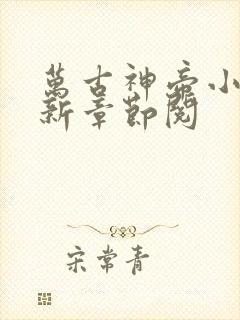 萬古神帝小
新章節閱
宋常青